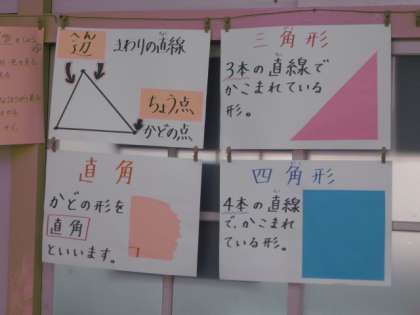 へん
辺
まわりの直線
ちょう点
かどの点
三角形
3本の直線で
かこまれている
形。
直角
かどの形を
直角
といいます。
四角形
4本の直線
で、かこまれ
ている形。